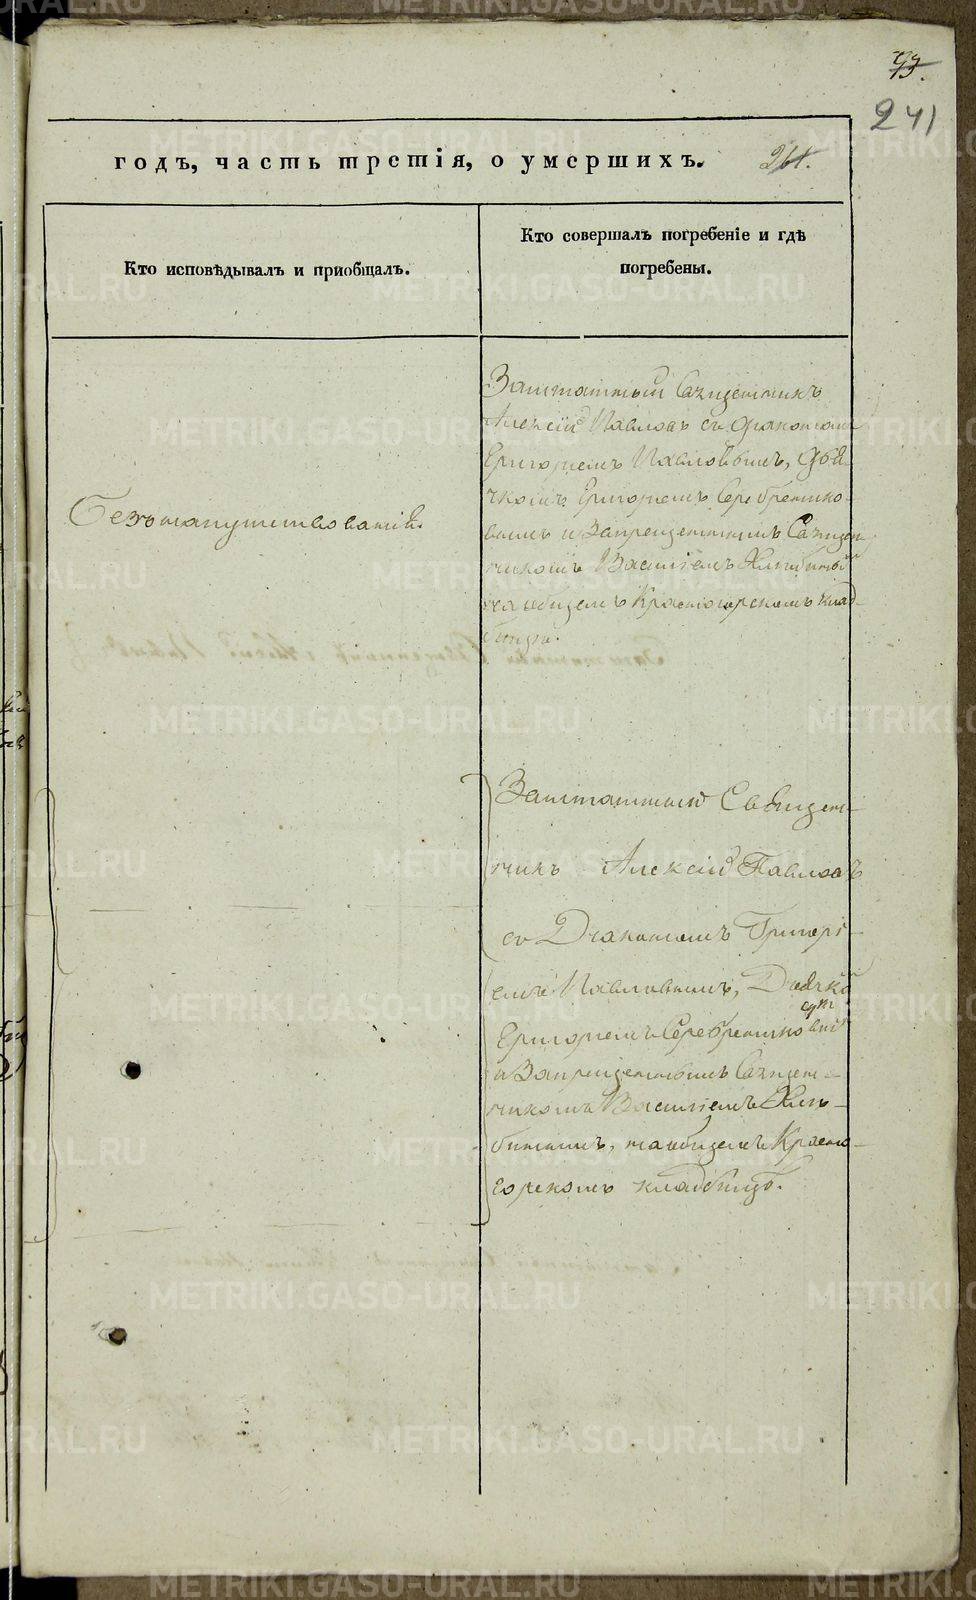 93.
241
годъ, часть третія, о умершихъ. 261.
Кто исповѣдывалъ и пріобщалъ.
Кто совершалъ погребеніе и гдѣ
погребены.
Заштатный Священникъ
Алексій Павловъ съ диакономъ
Григориемъ Павловымъ, дья-
чкомъ Григориемъ Серебренико-
вымъ и Запрещеннымъ Священ-
никомъ Василіемъ
на общемъ Красногорскомъ клад-
бищѣ.
Безъ напутствованія.
Заштатный Священ-
никъ Алексій Павловъ
со Диакономъ Григорі-
емъ Павловымъ, Дьячко
Григориемъ Серебрениковымъ
и Запрещеннымъ Священ-
никомъ Василіемъ Хлы-
бинымъ, на общемъ Красно-
горскомъ кладбищѣ.
METRIKI.GASO-URAL.RU